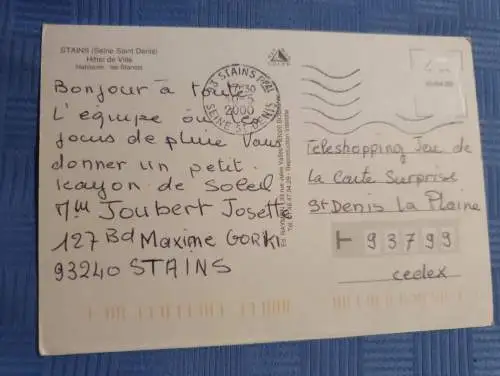 STAINS (Seine Saint Denis)
Hôtel de Ville
Bonjour à toute
L'equipe ou les
jocus de pluie Vous
donner un petit
Rayon de Soleil
Mme Joubert Josette
127 Bd Maxime GORKI
93240 STAINS
93 STAINS PPAL
2000
SEINE ST DENIS
Teleshopping Jeu de
La Carte Surprise
St Denis La Plaine
93799
cedex